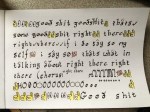 good shit goodshit thats
some good shit right there
right there there if i do say so my
self i say so thats what im
talking about right there right
there (chorus: right there)
Good shit